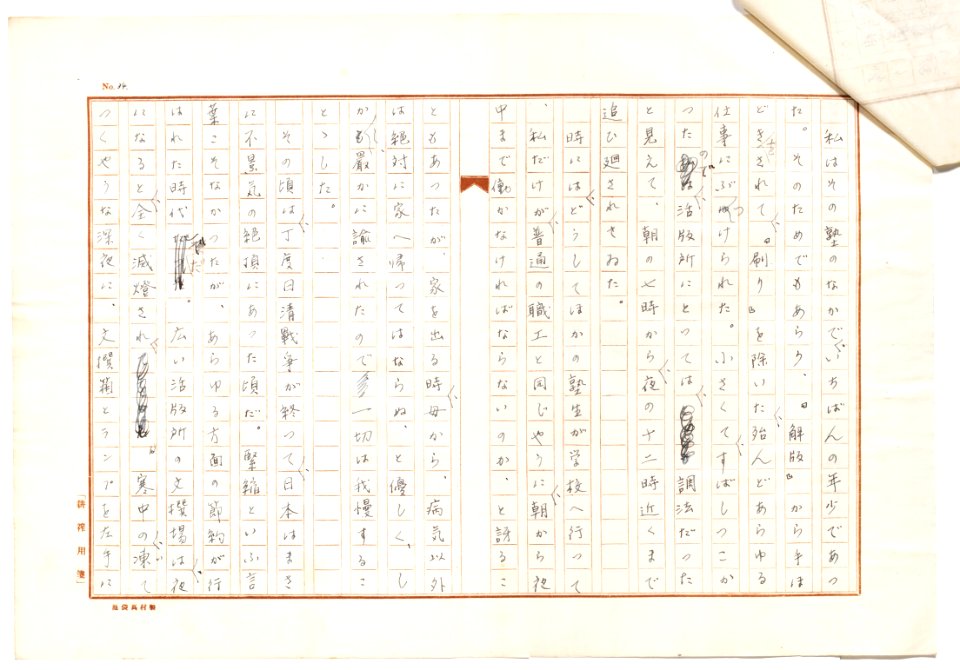 No. 14.
私はその塾のなかでいちばんの年少であつ
た。そのためでもあらう、「解版」から手ほ
どきされて、「刷り」を除いた殆んどあらゆる
仕事にぶつけられた。小さくてすばしつこか
つたので活版所にとつては調法だつた
と見えて、朝の七時から夜の十二時近くまで
追ひ廻されてゐた。
時にはどうしてほかの塾生が学校へ行つて
、私だけが普通の職工と同じやうに朝から夜
中まで働かなければならないのか、と訝るこ
ともあつたが、家を出る時母から、病気以外
は絶対に家へ帰つてはならぬ、と優しく、し
かし厳かに諭されたので一切は我慢するこ
とゝした。
その頃は丁度日清戦争が終つて日本はまさ
に不景気の絶頂にあつた頃だ。緊縮といふ言
葉こそなかつたが、あらゆる方面の節約が行
はれた時代だ。広い活版所の文撰場は夜
になると全く減燈され寒中の凍て
つくやうな深夜に、文撰箱とランプを左手に